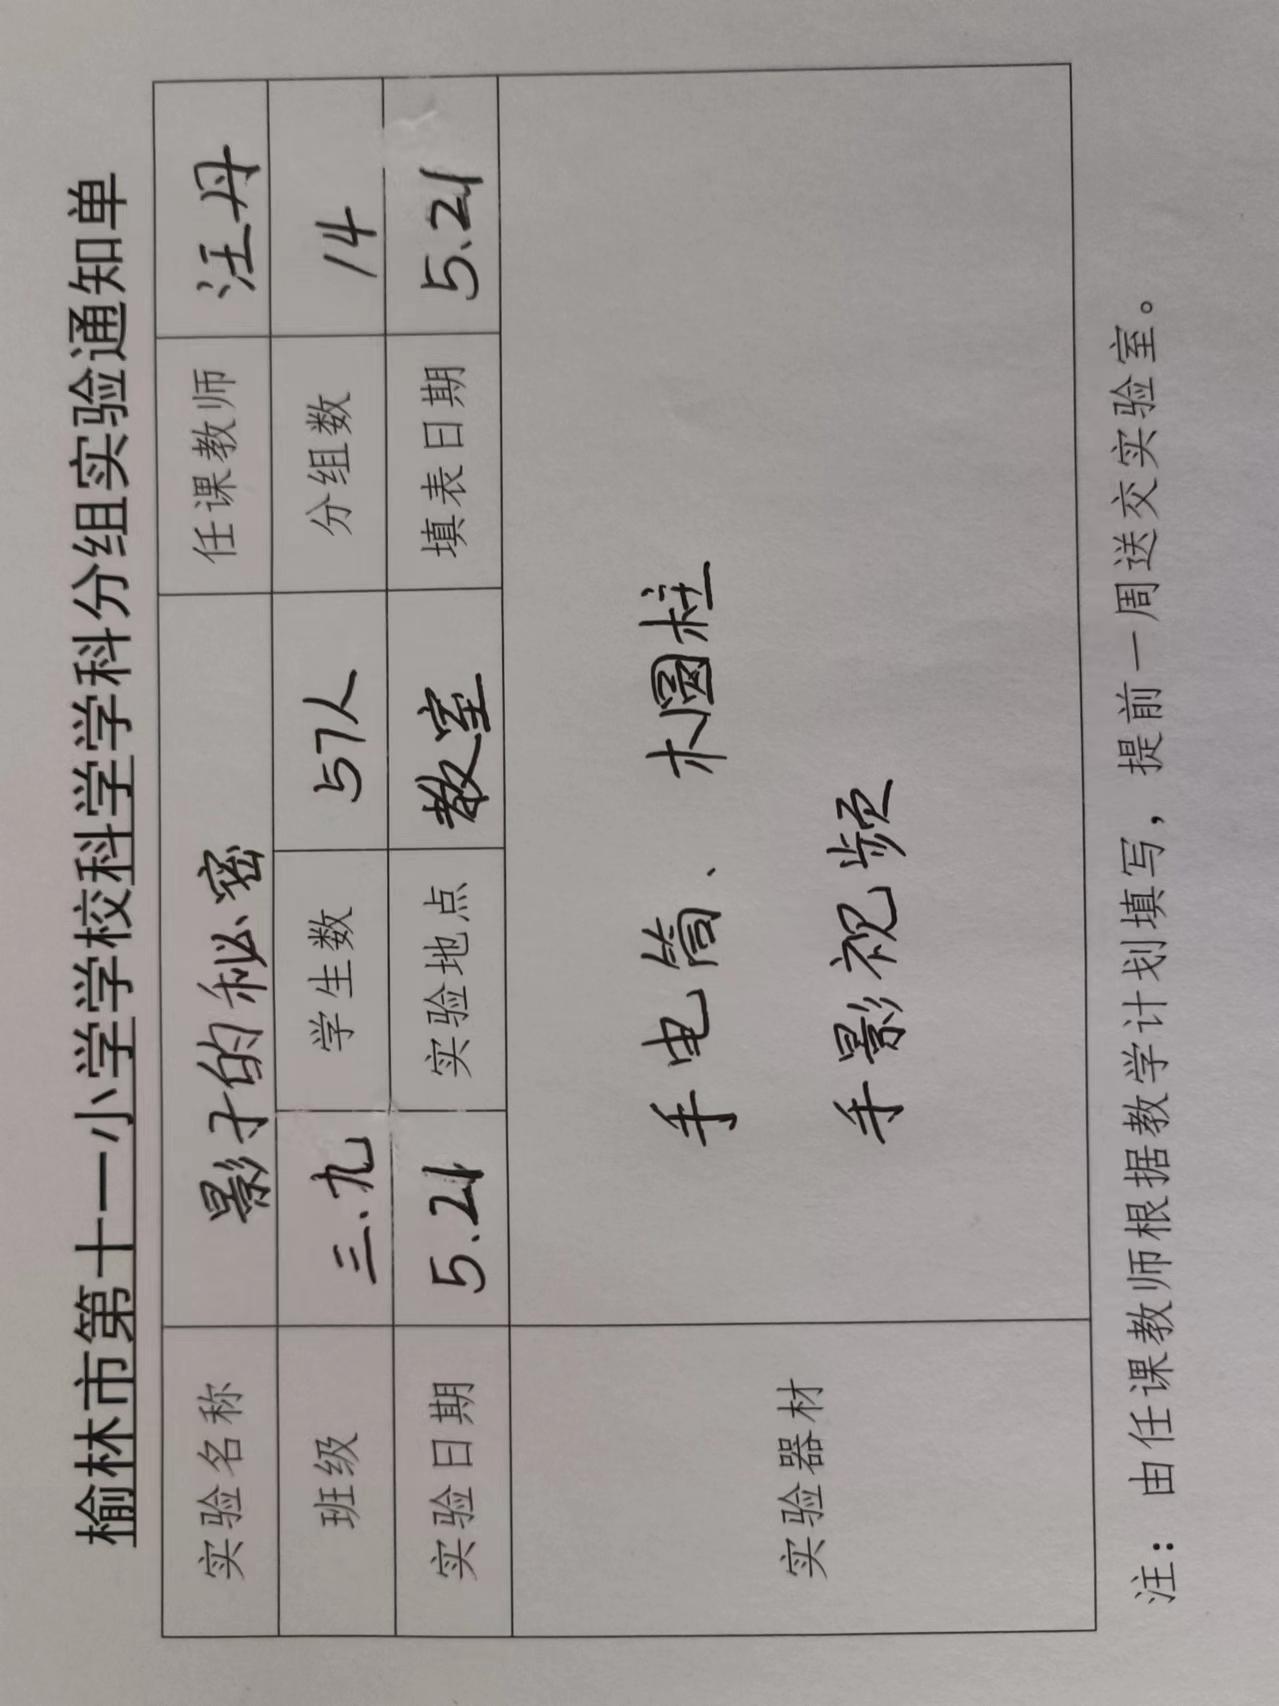 榆林市第十一小学学校科学学学科分组实验通知单
实验名称 影子的秘密 任课教师 汪丹
班级 三.九 学生数 57人 分组数 14
实验日期 5.21 实验地点 教室 填表日期 5.21
实验器材
手电筒、木圆柱
手影视频
注：由任课教师根据教学计划填写，提前一周送交实验室。